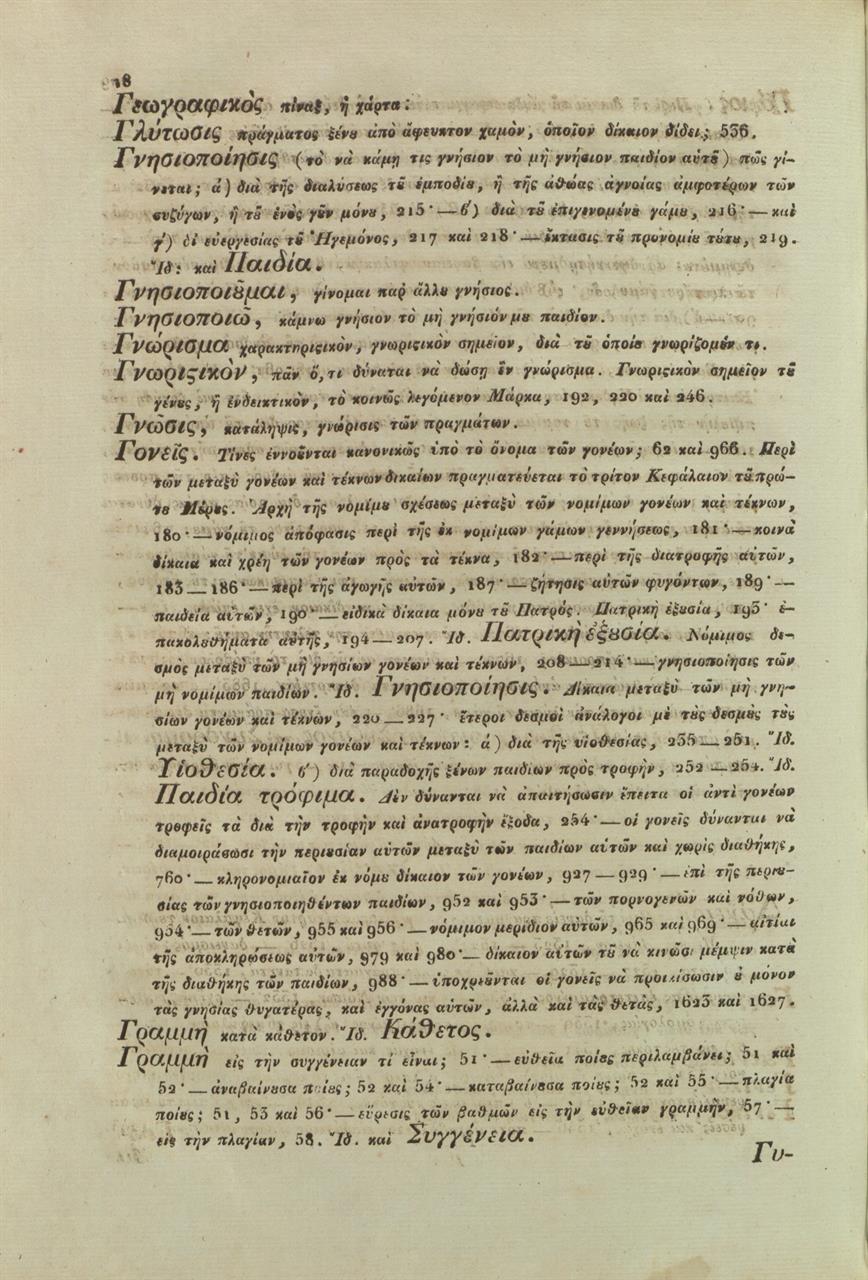 8
Γεωγραφικὸς πίναξ, ἢ χάρτα:
Γλύτωσις πράγματος ξένȣ ἀπὸ ἄφευκτον χαμὸν, ὁποῖον δίκαιον δίδει; 536.
Γνησιοποίησις (τὸ νὰ κάμῃ τις γνήσιον τὸ μὴ γνήσιον παιδίον αὑτȣ͂) πῶς γί-
νεται; ά) διὰ τῆς διαλύσεως τȣ͂ ἐμποδίȣ, ἢ τῆς ἀθώας ἀγνοίας ἀμφοτέρων τῶν
συζύγων, ἢ τȣ͂ ἑνὸς γȣ͂ν μόνȣ, 215· — ϐ́) διὰ τȣ͂ ἐπιγενομένȣ γάμȣ, 216· — καὶ
γ́) δἰ εὐεργεσίας τȣ͂ Ἡγεμόνος, 217 καὶ 218· — ἔκτασις τȣ͂ προνομίȣ τȣ́τȣ, 219.
Ἴδ: καὶ Παιδία.
Γνησιοποιȣ͂μαι, γίνομαι παῤ ἄλλȣ γνήσιος.
Γνησιοποιῶ, κάμνω γνήσιον τὸ μὴ γνήσιόν μȣ παιδίον.
Γνώρισμα χαρακτηριϛικὸν, γνωριϛικὸν σημεῖον, διὰ τȣ͂ ὁποίȣ γνωρίζομέν τι.
Γνωριϛικὸν, πᾶν ὅ, τι δύναται νὰ δώσῃ ἓν γνώρισμα. Γνωριϛικὸν σημεῖον τȣ͂
γένȣς, ἢ ἐνδεικτικὸν, τὸ κοινῶς λεγόμενον Μάρκα, 192, 220 καὶ 246.
Γνῶσις, κατάληψις, γνώρισις τῶν πραγμάτων.
Γονεῖς. Τίνες ἐννοȣ͂νται κανονικῶς ὑπὸ τὸ ὄνομα τῶν γονέων; 62 καὶ 966. Περὶ
τῶν μεταξὺ γονέων καὶ τέκνων δικαίων πραγματεύεται τὸ τρίτον Κεφάλαιον τȣ͂ πρώ-
τȣ Μέρȣς. Ἀρχὴ τῆς νομίμȣ σχέσεως μεταξὺ τῶν νομίμων γονέων καὶ τέκνων,
180· — νόμιμος ἀπόφασις περὶ τῆς ἐκ νομίμων γάμων γεννήσεως, 181· — κοινὰ
δίκαια καὶ χρέη τῶν γονέων πρὸς τὰ τέκνα, 182· — περὶ τῆς διατροφῆς αὐτῶν,
183 — 186· — περὶ τῆς ἀγωγῆς αὐτῶν, 187· — ζήτησις αὐτῶν φυγόντων, 189· —
παιδεία αὐτῶν, 190· — εἰδικὰ δίκαια μόνȣ τȣ͂ Πατρός. Πατρικὴ ἐξȣσία, 193· ἐ-
πακολȣθήματα αὐτῆς, 194 — 207. Ἴδ. Πατρικὴ ἐξȣσία. Νόμιμος δε-
σμὸς μεταξὺ τῶν μὴ γνησίων γονέων καὶ τέκνων, 208 — 214· — γνησιοποίησις τῶν
μὴ νομίμων παιδίων. Ἴδ. Γνησιοποίησις. Δίκαια μεταξὺ τῶν μὴ γνη-
σίων γονέων καὶ τέκνων, 220 — 227· ἕτεροι δεσμοὶ ἀνάλογοι μὲ τȣ̀ς δεσμȣ̀ς τȣ̀ς
μεταξὺ τῶν νομίμων γονέων καὶ τέκνων: ά) διὰ τῆς υἱοθεσίας, 235 — 251. Ἴδ.
Υἱοθεσία. ϐ́) διὰ παραδοχῆς ξένων παιδίων πρὸς τροφὴν, 252 — 254. Ἴδ.
Παιδία τρόφιμα. Δὲν δύνανται νὰ ἀπαιτήσωσιν ἔπειτα οἱ ἀντὶ γονέων
τροφεῖς τὰ διὰ τὴν τροφὴν καὶ ἀνατροφὴν ἔξοδα, 254· — οἱ γονεῖς δύνανται νὰ
διαμοιράσωσι τὴν περιȣσίαν αὑτῶν μεταξὺ τῶν παιδίων αὑτῶν καὶ χωρὶς διαθήκης,
760· — κληρονομιαῖον ἐκ νόμȣ δίκαιον τῶν γονέων, 927 — 929· — ἐπὶ τῆς περιȣ-
σίας τῶν γνησιοποιηθέντων παιδίων, 952 καὶ 953· — τῶν πορνογενῶν καὶ νόθων,
954· — τῶν θετῶν, 955 καὶ 956· — νόμιμον μερίδιον αὐτῶν, 965 καὶ 969· — αἰτίαι
τῆς ἀποκληρώσεως αὐτῶν, 979 καὶ 980· — δίκαιον αὐτῶν τȣ͂ νὰ κινῶσι μέμψιν κατὰ
τῆς διαθήκης τῶν παιδίων, 988· — ὑποχρεȣ͂νται οἱ γονεῖς νὰ προικίσωσιν ȣ̓ μόνον
τὰς γνησίας θυγατέρας, καὶ ἐγγόνας αὑτῶν, ἀλλὰ καὶ τὰς θετὰς, 1623 καὶ 1627.
Γραμμὴ κατὰ κάθετον. Ἴδ. Κάθετος.
Γραμμὴ εἰς τὴν συγγένειαν τί εἶναι; 51· — εὐθεῖα ποίȣς περιλαμβάνει; 51 καὶ
52· — ἀναβαίνȣσα ποίȣς; 52 καὶ 54· — καταβαίνȣσα ποίȣς; 52 καὶ 55· — πλαγία
ποίȣς; 51, 53 καὶ 56· — εὕρεσις τῶν βαθμῶν εἰς τὴν εὐθεῖαν γραμμὴν, 57· —
εἰς τὴν πλαγίαν, 58. Ἴδ. καὶ Συγγένεια.
Γυ-